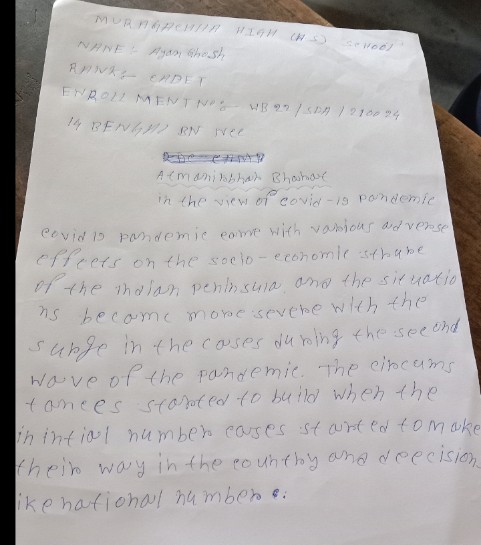 MURAGACHHA HIGH (H.S) SCHOOL
NAME :- Ayan Ghosh
RANK :- CADET
ENROLLMENT NO :- WB 22/SDA/210024
14 BENGAL BN NCC
Atmanirbhar Bharat
in the view of covid-19 pandemic
covid 19 pandemic came with various adverse
effects on the socio-economic
of the indian peninsula and the situatio
ns became more severe with the
surge in the cases during the second
wave of the pandemic. The circums
tances started to build when the
inintial number cases started to make
their way in the country and deecision
ike national number